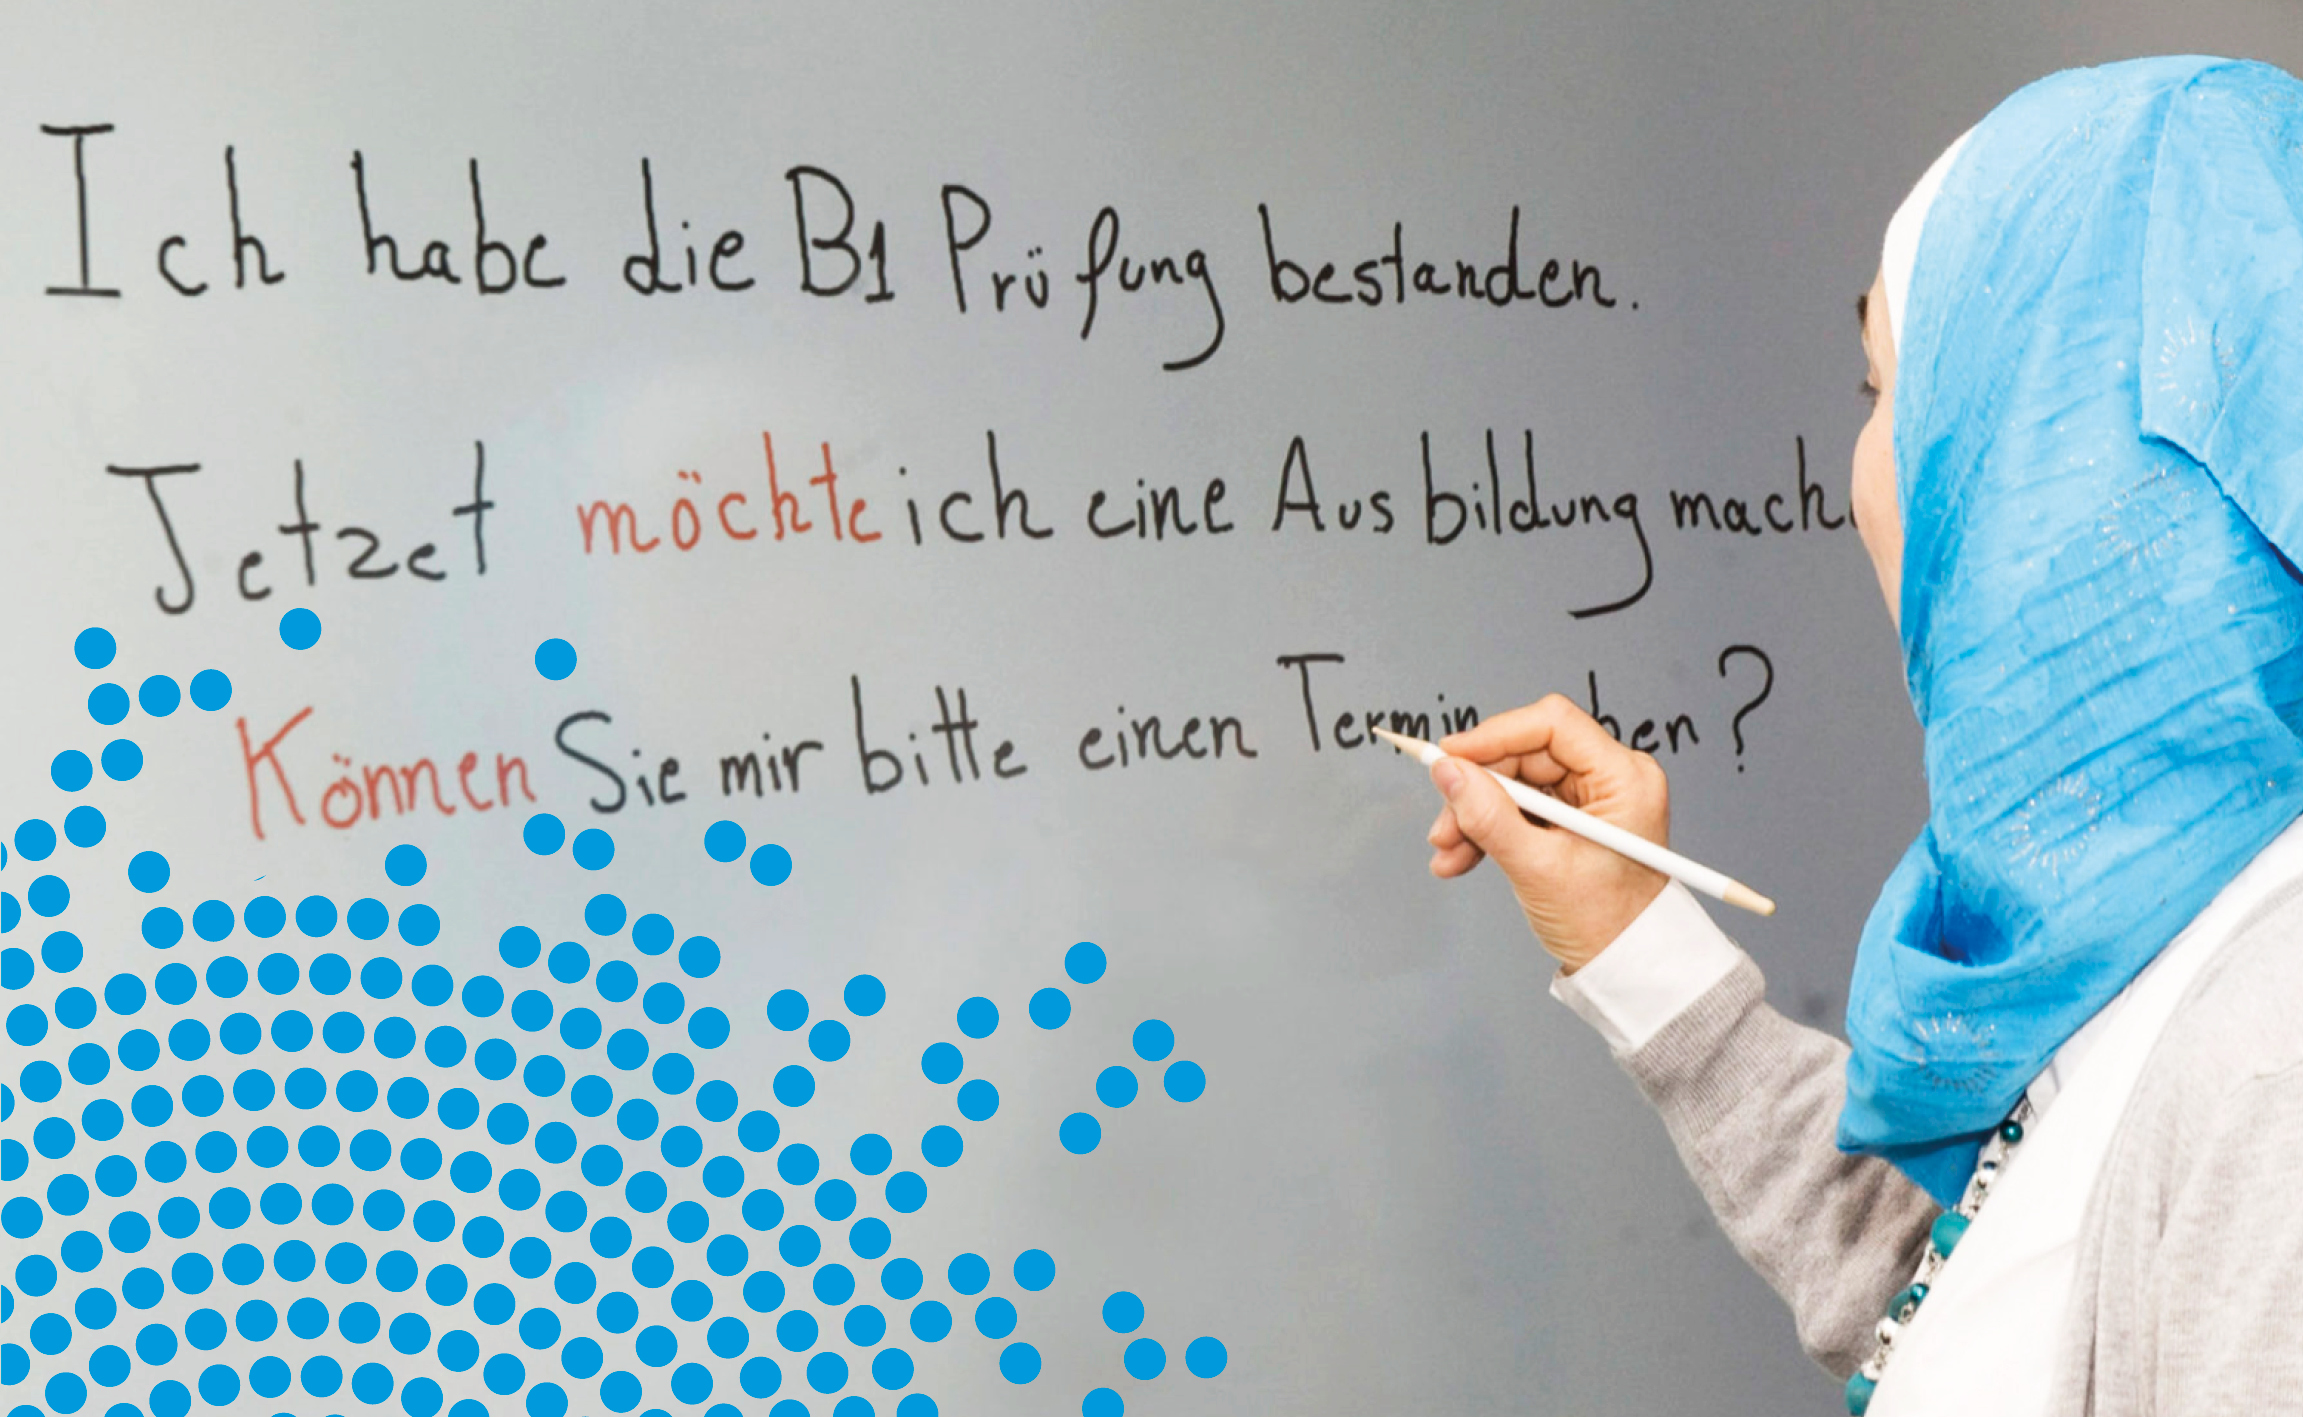 Ich habe die B1 Prüfung bestanden.
Jetzet möchte ich eine Ausbildung mach
Können Sie mir bitte einen Termin ben?